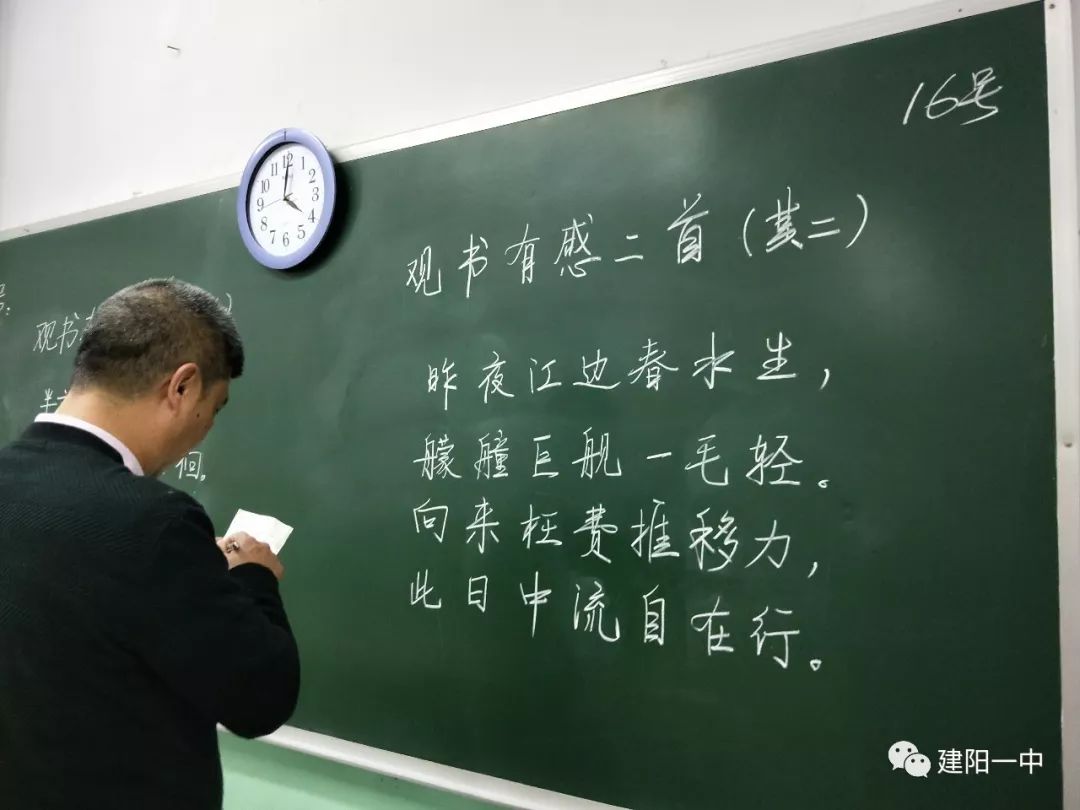 16号
观书有感二首(其二)
昨夜江边春水生,
艨艟巨舰一毛轻。
向来枉费推移力,
此日中流自在行。
号:
观书
半
徊。
11 12 1
10 2
9 3
8 4
7 6 5
建阳一中